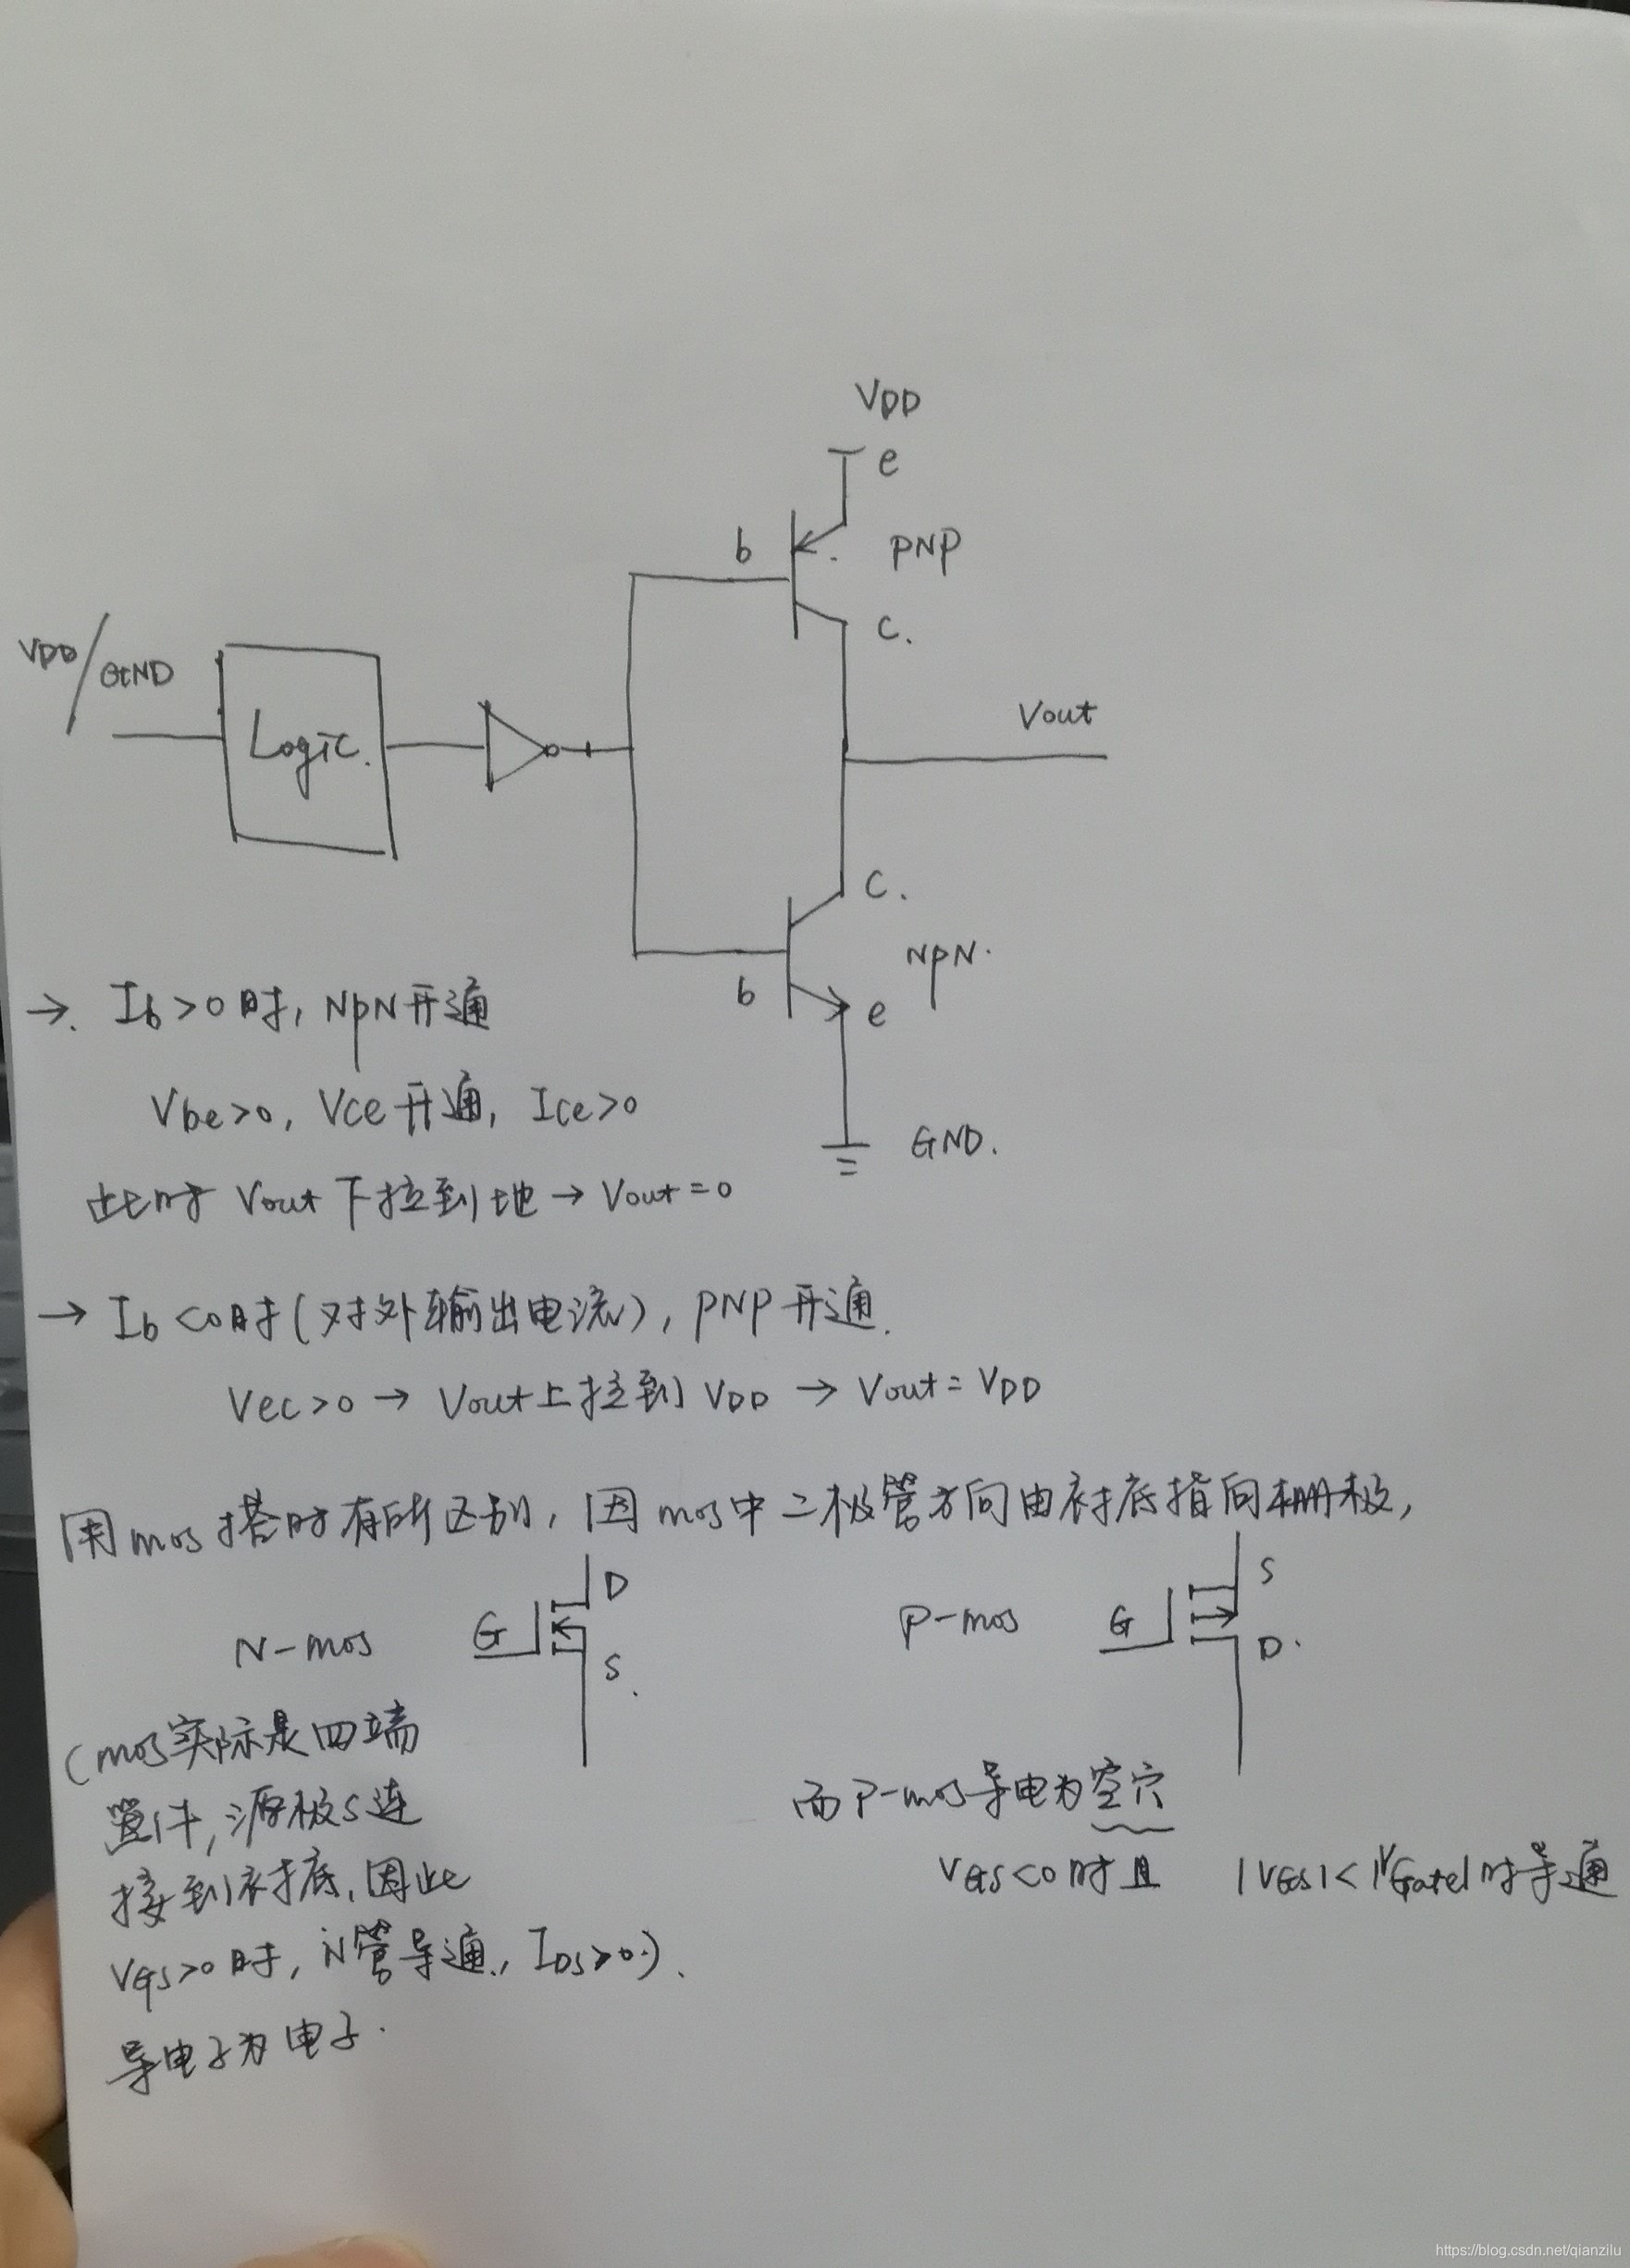 VDD
e
b
PNP
c.
VDD/GND
Logic.
Vout
c.
NPN.
b
e
GND.
→. Ib>0时, NPN开通
Vbe>0, Vce开通, Ice>0
此时 Vout 下拉到地→Vout=0
→ Ib<0时(对外输出电流), PNP开通.
Vec>0 → Vout上拉到 VDD → Vout=VDD
用mos搭时有所区别, 因mos中二极管方向由衬底指向栅极,
N-mos
G
D
S.
P-mos
G
S
D.
(mos实际是四端
置件, 源极S连
接到衬底, 因此
VGS>0时, N管导通, IDS>0).
导电子为电子.
而P-mos导电为空穴
VGS<0时且 |VGS|<|VGate|时导通
https://blog.csdn.net/qianzilu